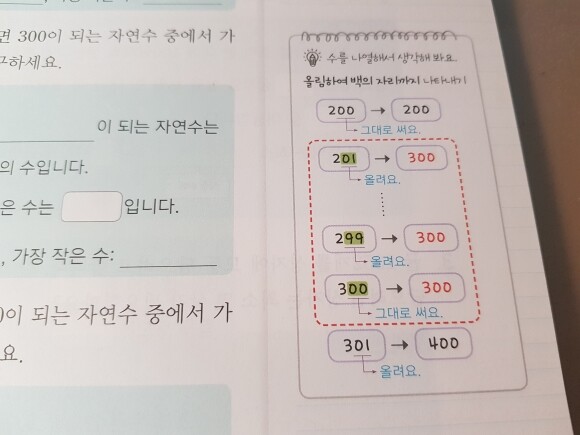 면 300이 되는 자연수 중에서 가
구하세요.
이 되는 자연수는
의 수입니다.
은 수는 입니다.
, 가장 작은 수:
이 되는 자연수 중에서 가
요.
수를 나열해서 생각해 봐요.
올림하여 백의 자리까지 나타내기
200 → 200
그대로 써요.
201 → 300
올려요.
299 → 300
올려요.
300 → 300
그대로 써요.
301 → 400
올려요.